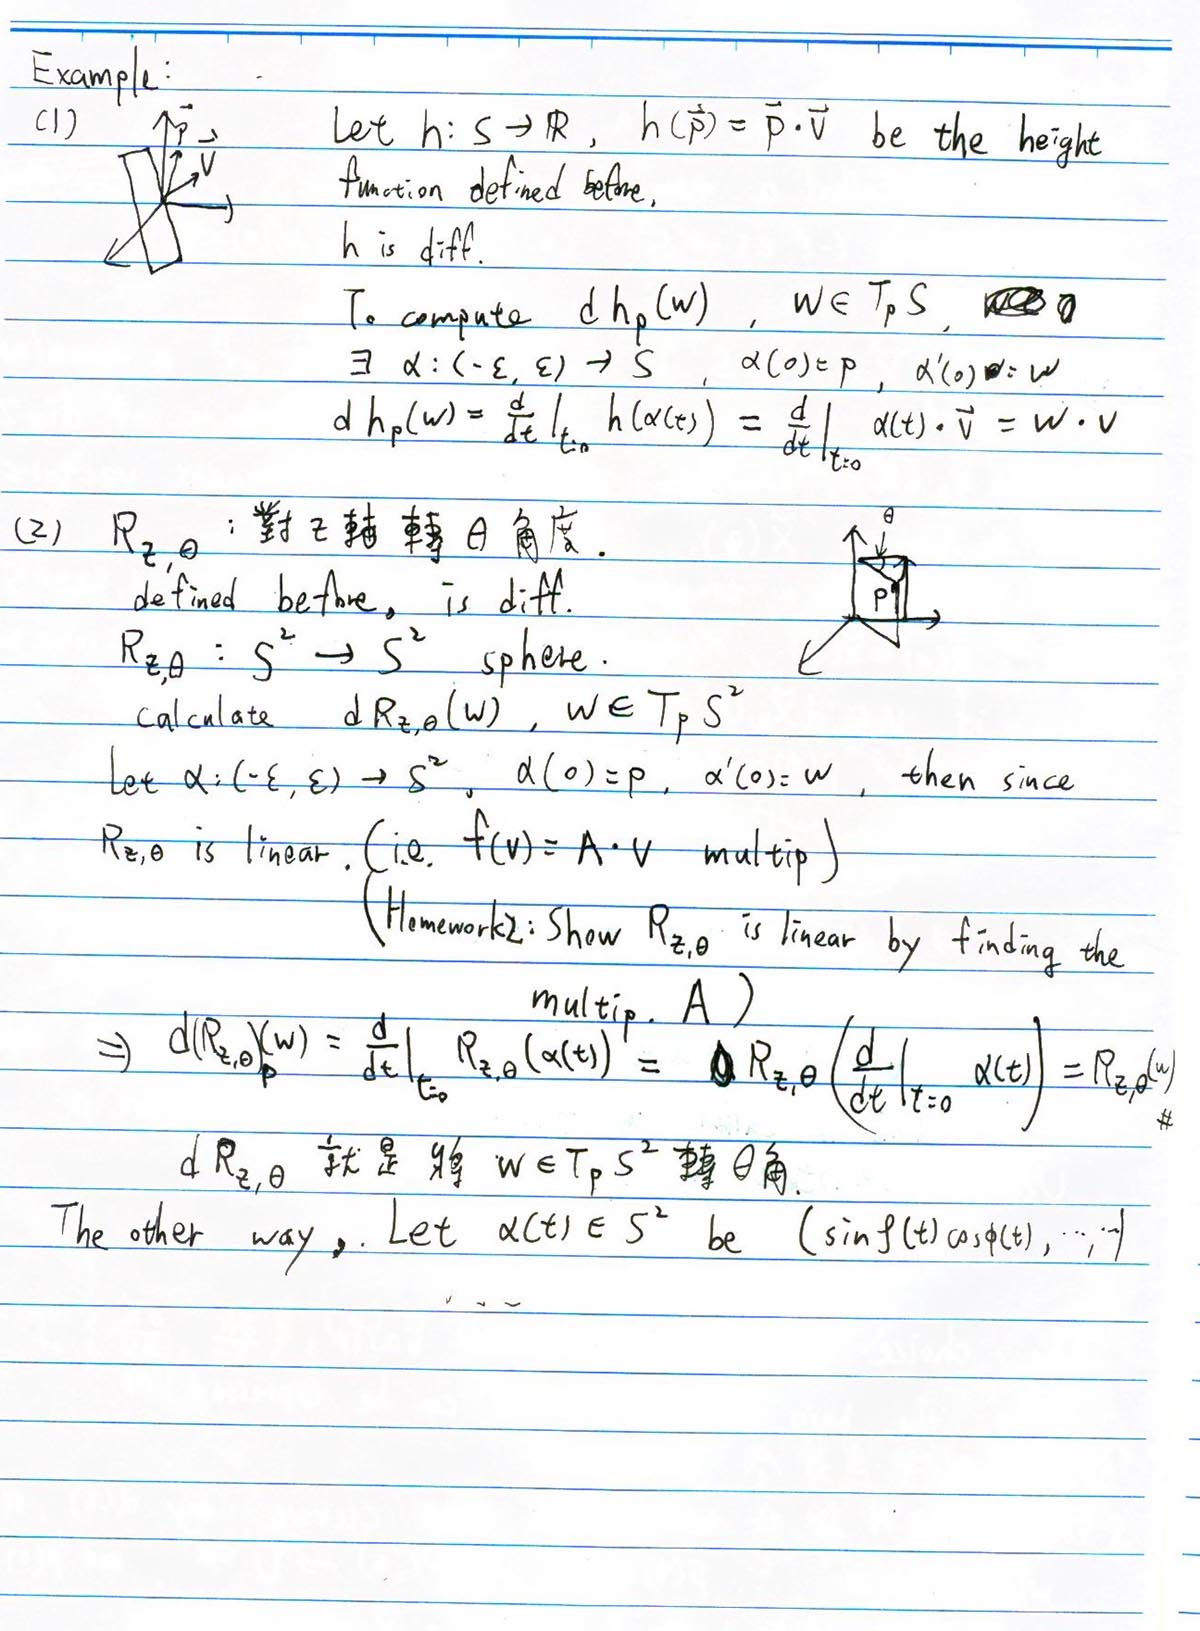 Example:
(1)
p⃗
v⃗
Let h: S → ℝ, h(p⃗) = p⃗ · v⃗ be the height
function defined before,
h is diff.
To compute dhₚ(w), w ∈ TₚS,
∃ α: (-ε, ε) → S, α(0) = p, α'(0) = w
dhₚ(w) = d/dt|t=0 h(α(t)) = d/dt|t=0 α(t) · v⃗ = w · v
(2) R_z,θ : 對 z 軸 轉 θ 角度.
θ
p
defined before, is diff.
R_z,θ : S² → S² sphere.
calculate dR_z,θ(w), w ∈ TₚS²
Let α: (-ε, ε) → S², α(0) = p, α'(0) = w, then since
R_z,θ is linear. (i.e. f(v) = A · v multip)
(Homework2: Show R_z,θ is linear by finding the
multip. A)
⇒ d(R_z,θ)ₚ(w) = d/dt|t=0 R_z,θ(α(t)) = R_z,θ(d/dt|t=0 α(t)) = R_z,θ(w)
#
dR_z,θ 就是 將 w ∈ TₚS² 轉 θ 角.
The other way, . Let α(t) ∈ S² be (sin f(t) cos φ(t), ..., ...)
...